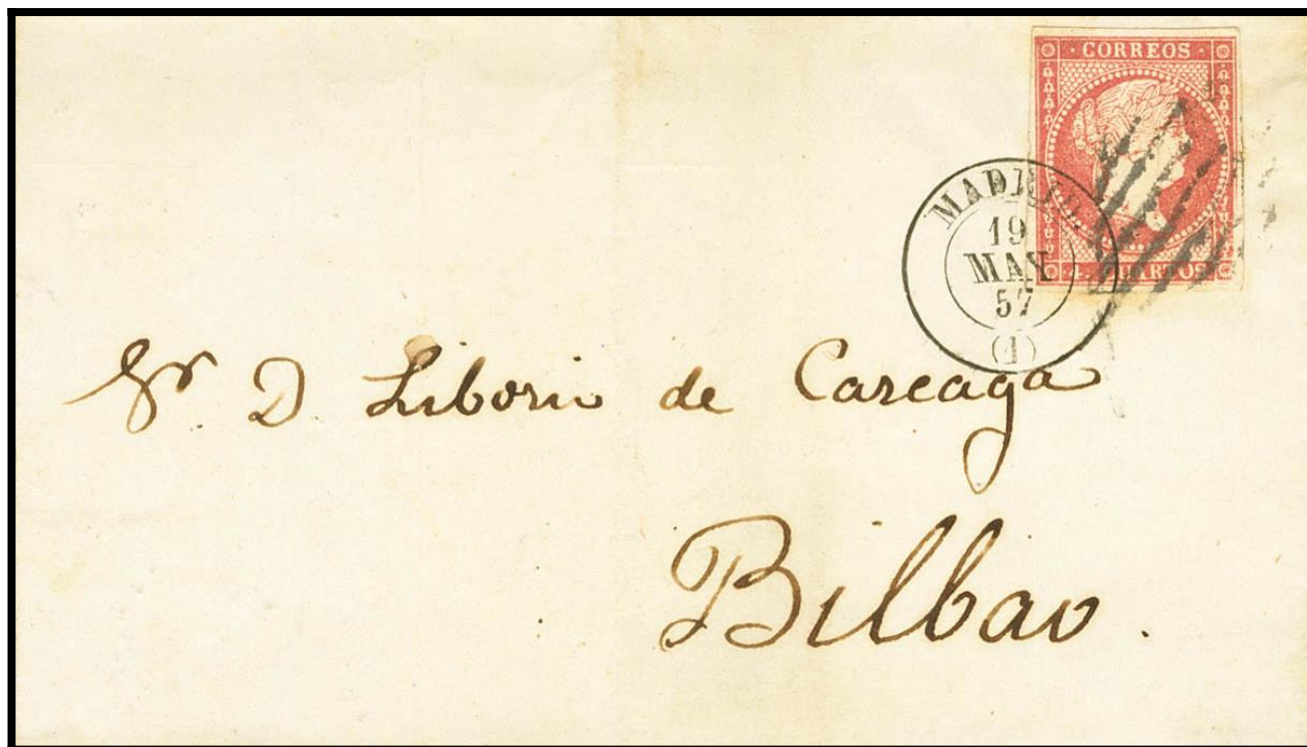 CORREOS
4. CUARTOS
MADRID
19
MAY
57
(1)
Sr D Liborio de Careaga
Bilbao.